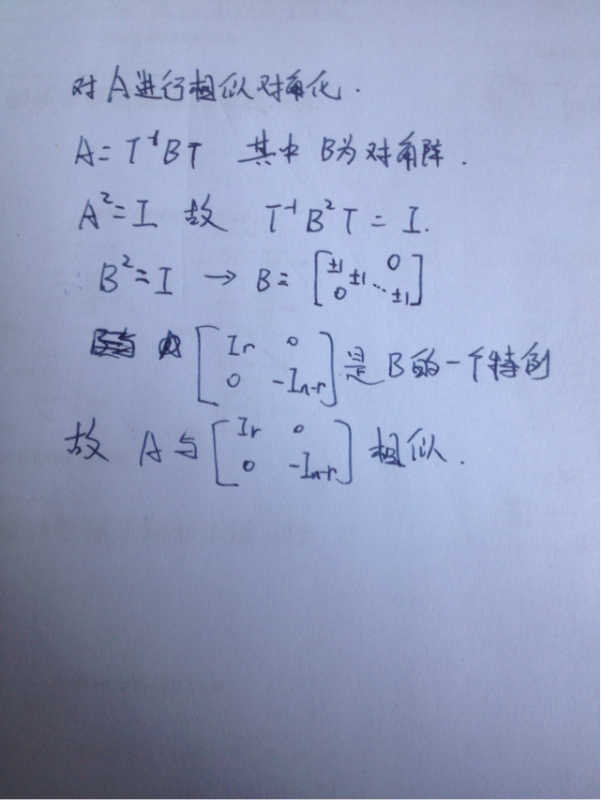 对A进行相似对角化.
A=T⁻¹BT 其中 B为对角阵.
A²=I 故 T⁻¹B²T=I.
B²=I → B=[±1 ±1 0 0 ⋱ ±1]
[Ir 0 0 -In-r]是B的一个特例
故 A与[Ir 0 0 -In-r]相似.